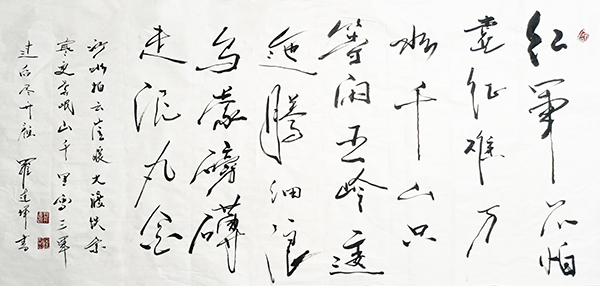 红军不怕
远征难万
水千山只
等闲五岭逶
迤腾细浪
乌蒙磅礴
走泥丸金
沙水拍云崖暖大渡铁索
寒更喜岷山千里雪三军
过后尽开颜 罗 书